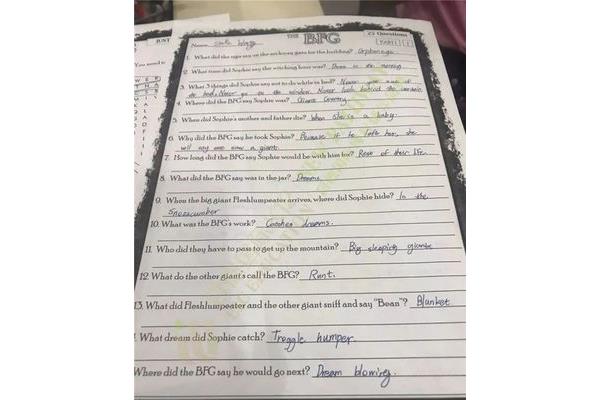 JUST
THE BFG
25 Questions
Name
1. What did the sign say on the archway gate for the building? Orphanage
2. What time did Sophie say the witching hour was? Three in the morning
3. What 3 things did Sophie say not to do while in bed? Never get out of
the bed. Never go to the window. Never look behind the curtain.
4. Where did the BFG say Sophie was? Giant Country
5. When did Sophie's mother and father die? When she is a baby.
6. Why did the BFG say he took Sophie? Because if he left her, she
will say she saw a giant.
7. How long did the BFG say Sophie would be with him for? Rest of their life.
8. What did the BFG say was in the jar? Dreams.
9. When the big giant Fleshlumpeater arrives, where did Sophie hide? In the
Snozzcumber
10. What was the BFG's work? Catches dreams.
11. Who did they have to pass to get up the mountain? Big sleeping giants
12. What do the other giant's call the BFG? Runt.
13. What did Fleshlumpeater and the other giant sniff and say "Bean"? Blanket
What dream did Sophie catch? Troggle humper.
Where did the BFG say he would go next? Dream blowing.